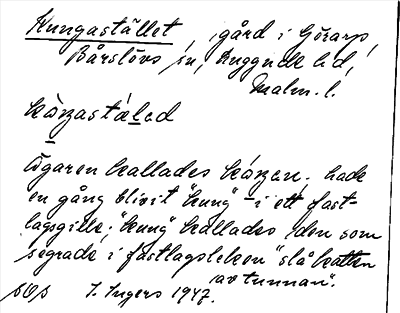 Kungastället, gård i Görarp,
Bårslövs sn, Luggude hd,
Malm. l.
kåŋastæləd
Ägaren kallades kåŋen; hade
en gång blivit "kung" i ett fast-
lagsgille; "kung" kallades den som
segrade i fastlagsleken "slå katten
av tunnan".
SOS I. Ingers 1947.